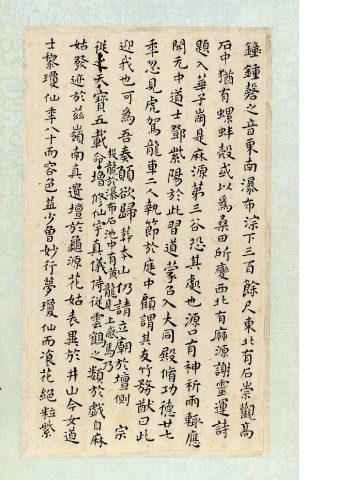 鐘鍾磬之音東南瀑布淙下三百餘尺東北有石崇觀高
石中猶有螺蚌殼或以為桑田所變西北有麻源謝靈運詩
題入華子崗是麻源第三谷恐其處也源口有神祈雨輒應
開元中道士鄧紫陽於此習道蒙召入大同殿脩功德廿七
秊忽見虎駕龍車二人執節於庭中顧謂其友竹務猷曰此
迎我也可為吾奏願欲歸葬本山仍請立廟於壇側 宗
投龍於瀑布石池中有黃龍見上感焉乃
從之天寶五載命增修仙宇真儀侍從雲鶴之類於戲自麻
姑發迹於茲嶺南真遺壇於龜源花姑表異於井山今女道
士黎瓊仙秊八十而容色益少曾妙行夢瓊仙而飡花絕粒紫